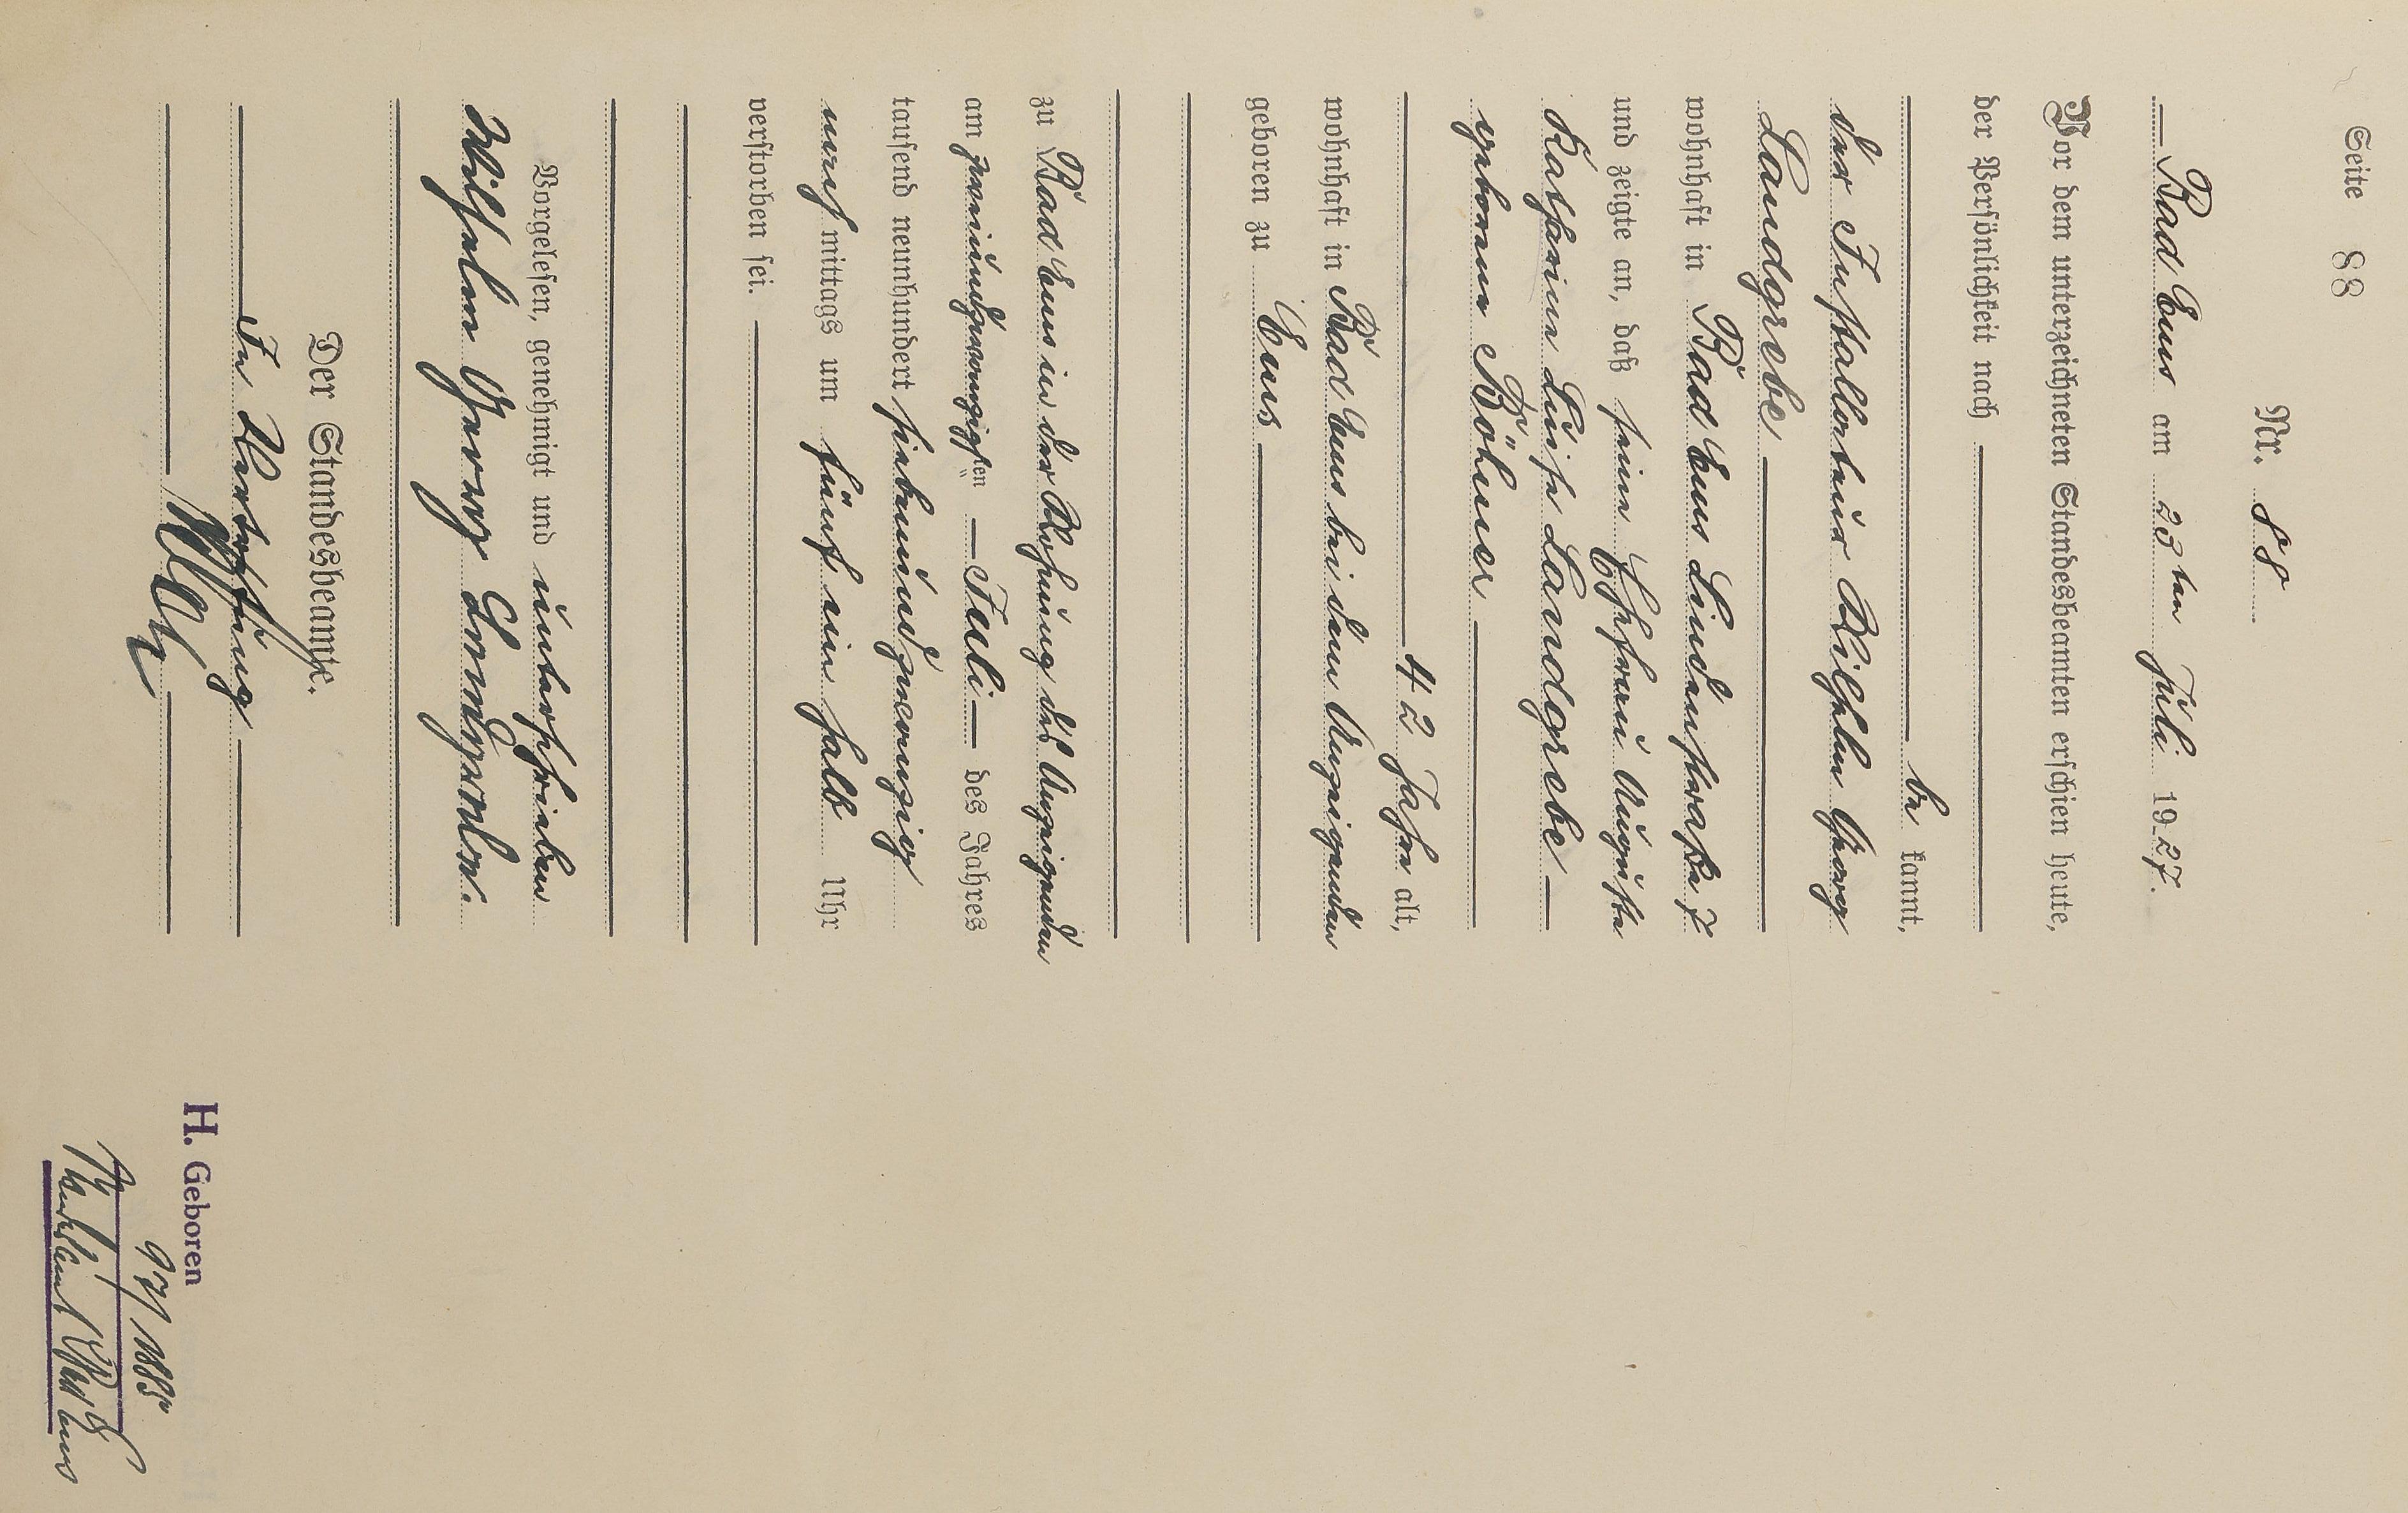 Seite 88
Nr. 88
Bad Ems am 23ten Juli 1927.
Vor dem unterzeichneten Standesbeamten erschien heute,
der Persönlichkeit nach
be kannt,
der Installateur Wilhelm Georg
Landgrebe
wohnhaft in Bad Ems Lindenstraße 7
und zeigte an, daß seine Ehefrau Auguste
Katharine Luise Landgrebe
geborene Böhmer
42 Jahre alt,
wohnhaft in Bad Ems bei dem Anzeigenden
geboren zu Ems
zu Bad Ems in der Wohnung des Anzeigenden
am zweiundzwanzigsten Juli des Jahres
tausend neunhundert siebenundzwanzig
nach mittags um fünf ein halb Uhr
verstorben sei.
Vorgelesen, genehmigt und unterschrieben
Wilhelm Georg Landgrebe.
Der Standesbeamte.
In Vertretung
H. Geboren
97/1885
Standesamt Bad Ems